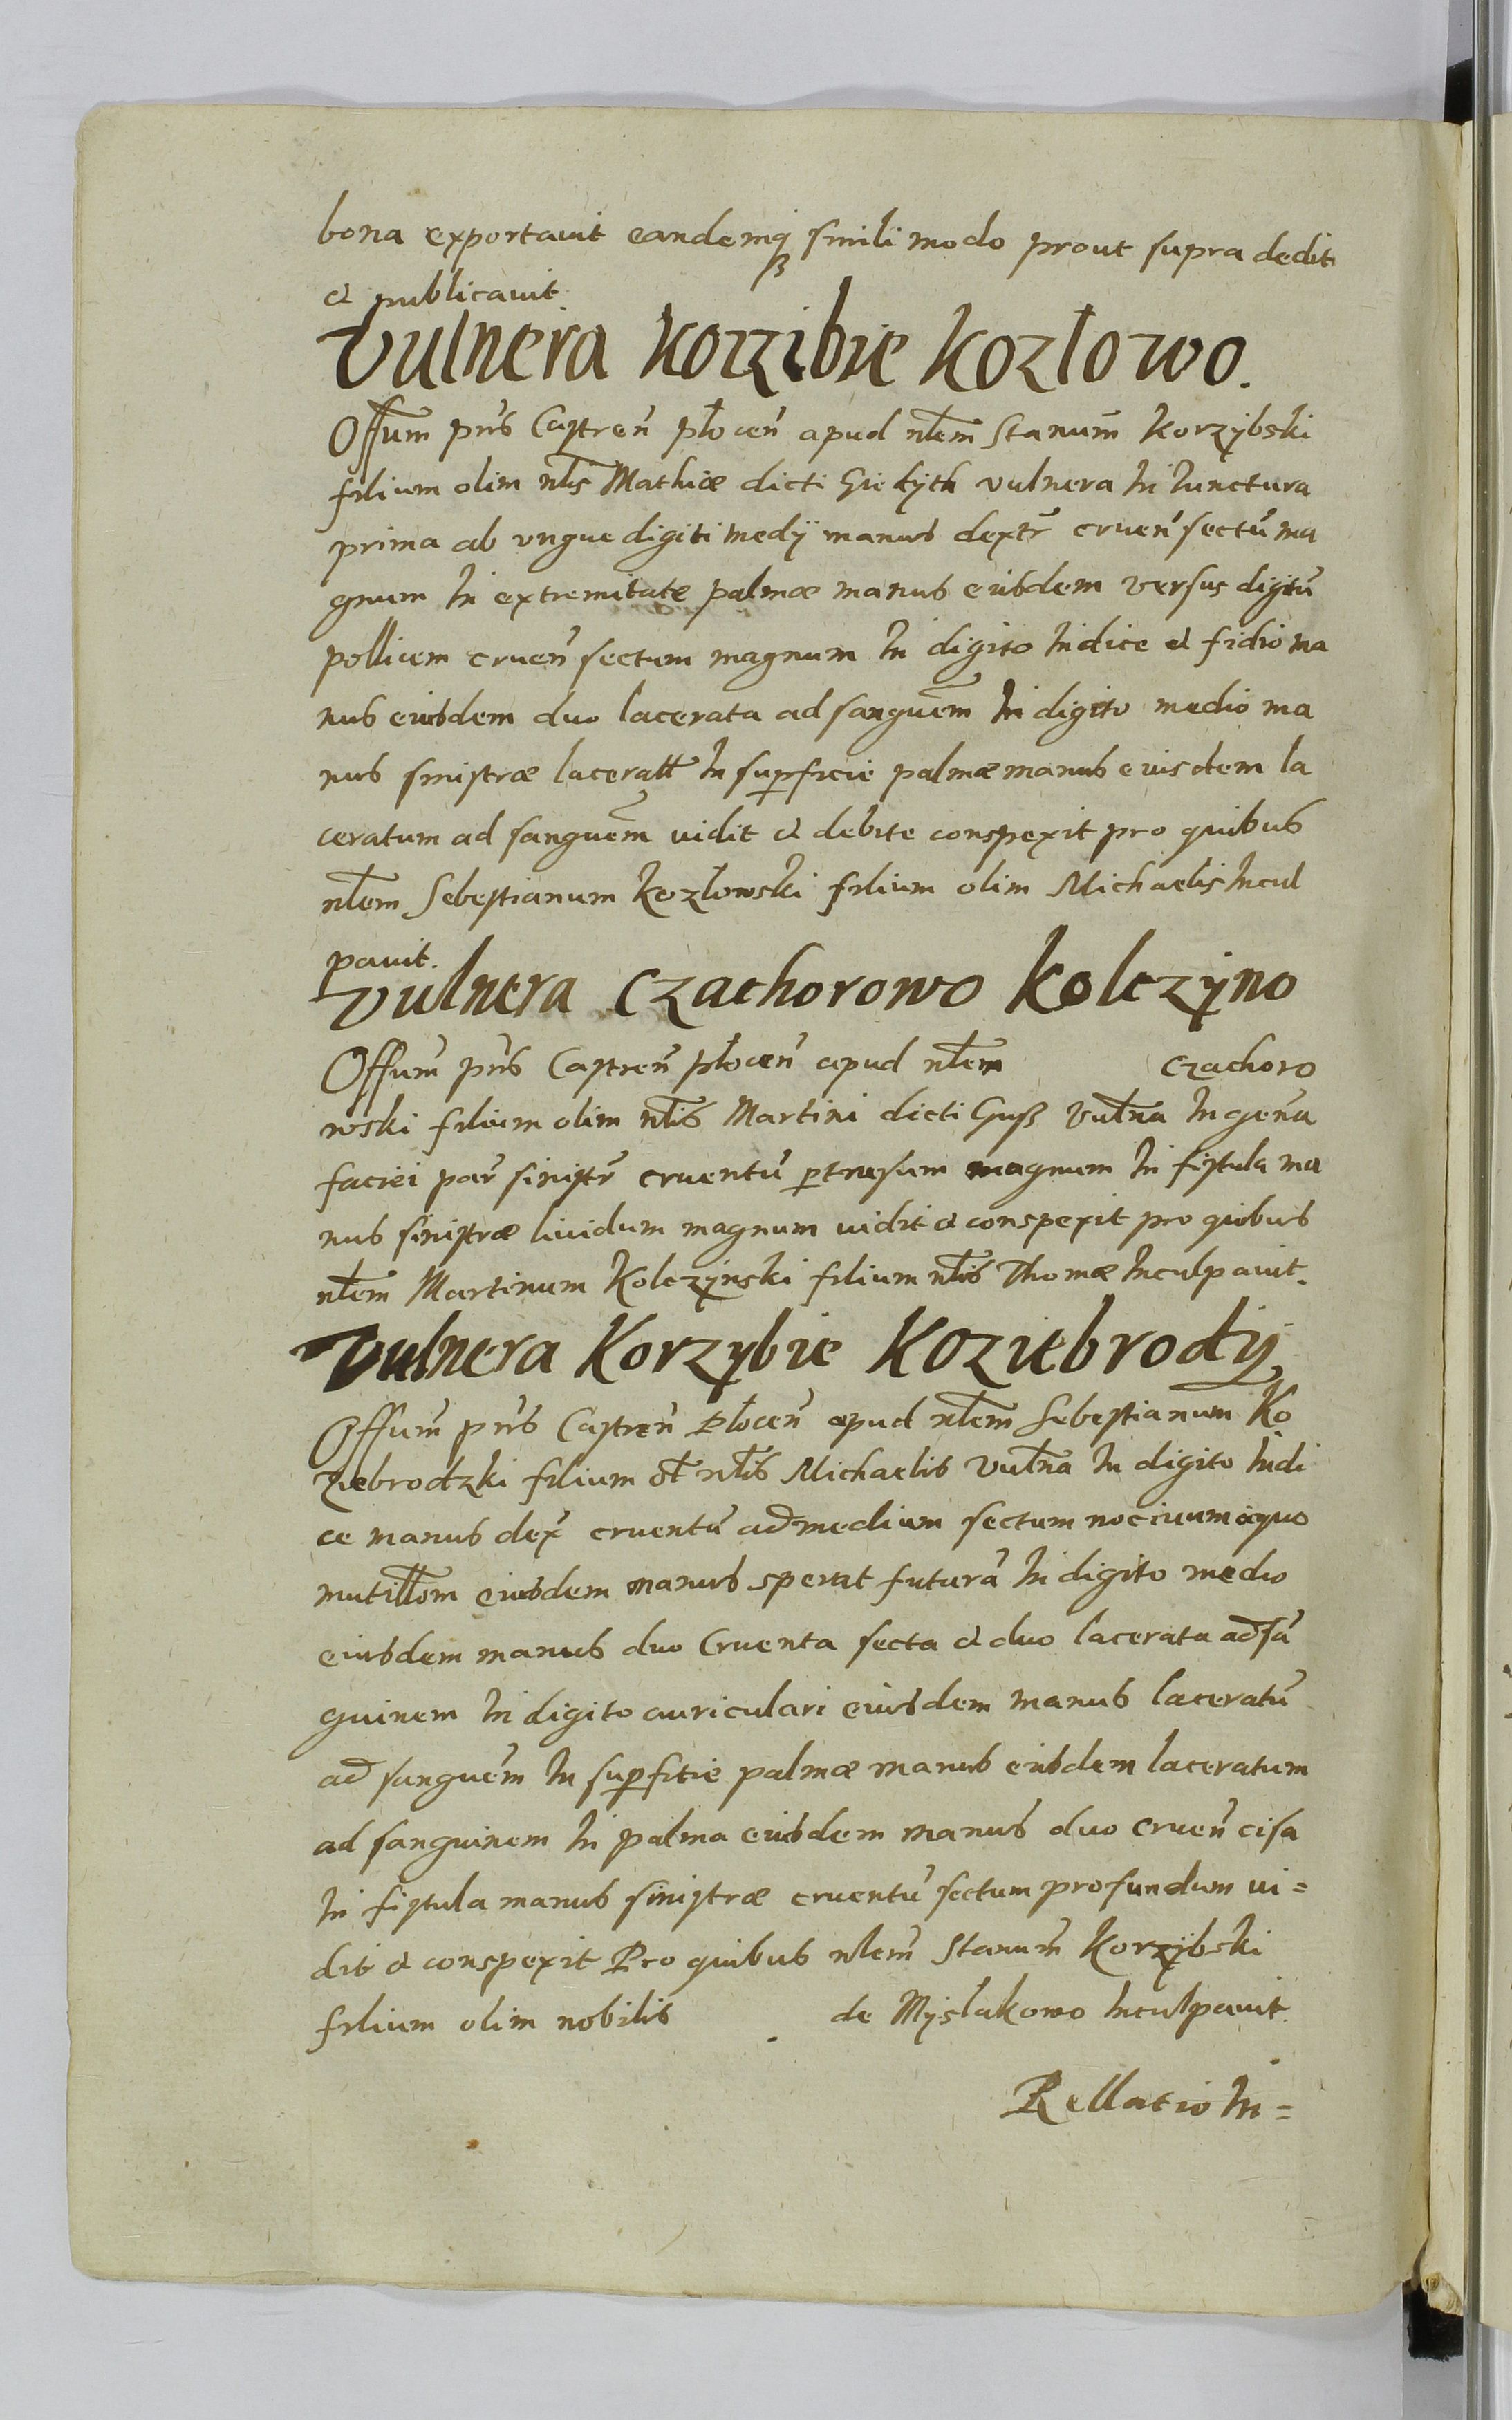 bona exportauit eandemq simili modo prout supra dedit
et publicauit.
Vulnera Korzibie Kozłowo.
Offum pñs Castreñ płoceñ apud nłem Stanum̃ Korzÿbski
filium olim nłis Mathiæ dicti vulnera In Iunctura
prima ab vngue digiti medÿ manus dextr̃ crueñ sectũ ma
gnum In extremitate palmæ manus eiusdem versus digitũ
pollicem crueñ sectum magnum In digito Indice et ma
nus eiusdem duo lacerata ad sanguem̃ In digito medio ma
nus sinistræ laceratt In superficie palmæ manus eiusdem la
ceratum ad sanguem̃ uidit et debite conspexit pro quibus
nłem Sebestianum Kozłowski filium olim Michaelis Incul
pauit.
Vulnera Czachorowo Kolczÿno
Offum̃ pñs Castreñ płoceñ apud nłem Czachoro
wski filium olim nłis Martini dicti Guß Vułna In geña
faciei par̃ sinistr̃ cruentũ pertusum magnum In fistula ma
nus sinistræ liuidum magnum uidit et conspexit pro quibus
nłem Martinum Kolczÿnski filium nłis Thomæ Inculpauit.
Vulnera Korzybie Koziebrodÿ
Offum̃ pñs Castreñ Płoceñ apud nłem Sebestianum Ko
ziebrodzki filium oł nłis Michaelis Vułna In digito Indi
ce manus dex̃ cruentũ ad medium sectum nociuum a quo
mutiłłom eiusdem manus sperat futurã In digito medio
eiusdem manus duo Cruenta secta et duo lacerata ad sã
guinem In digito auriculari eiusdem manus laceratũ
ad sanguem̃ In superfitie palmæ manus eiusdem laceratum
ad sanguinem In palma eiusdem manus duo crueñ cisa
In fistula manus sinistræ cruentũ sectum profundum ui=
dit et conspexit Pro quibus nlem̃ Stanum̃ Korzÿbski
filium olim nobilis de Mÿslakowo Inculpauit.
Rellatio In=